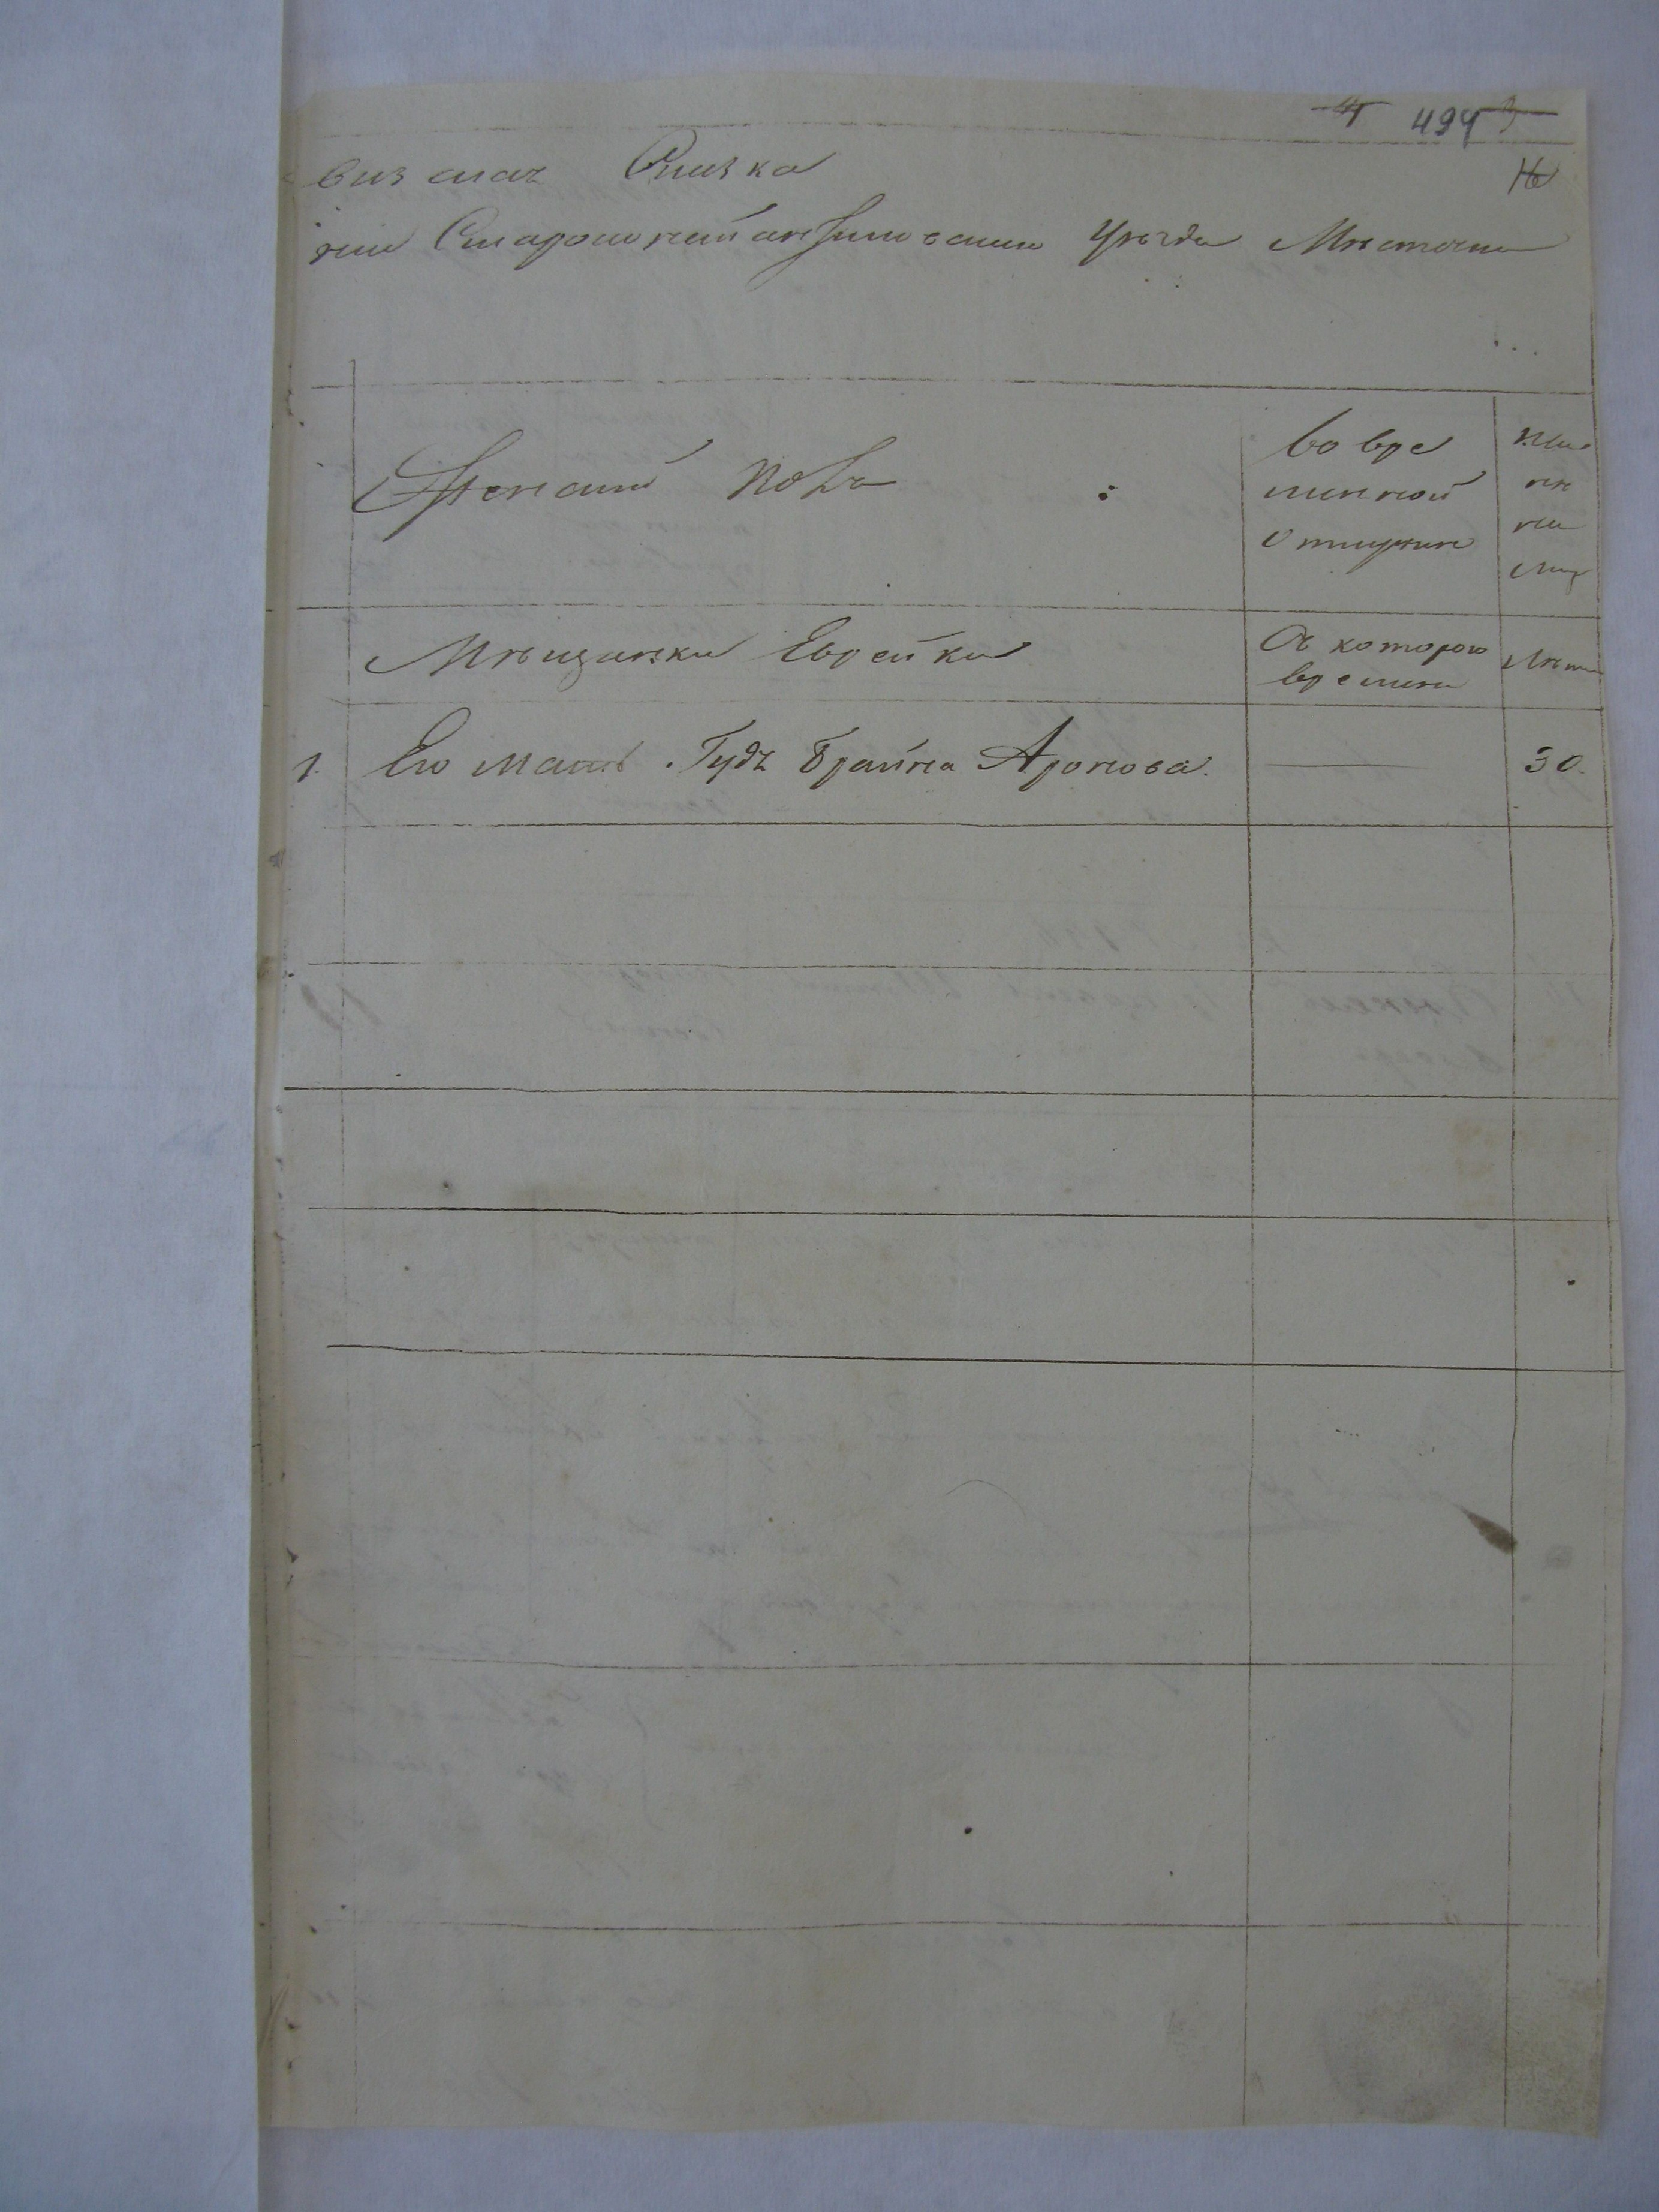 494
16
визская Сказка
нии Староконстантиновскаго Уѣзда Мѣстечка
Женскій полъ
во вре
менной
отлучкѣ
нын
ѣ
на
лиц
Мѣщанки Еврейки
Съ котораго
времени
Лѣта
1. Его мать Гудъ Брайна Аронова. 30.